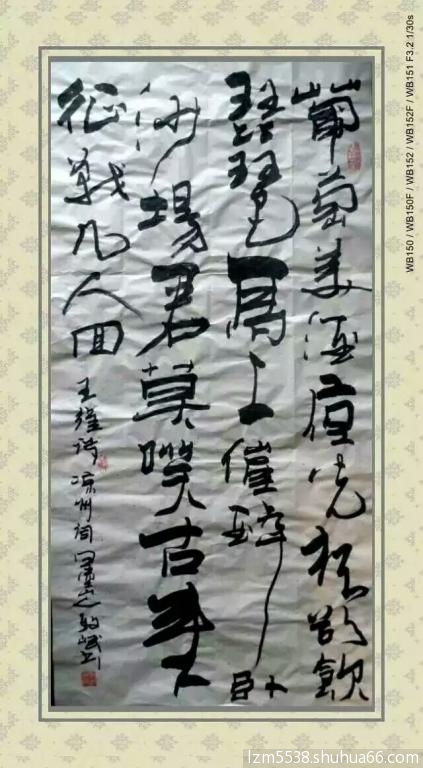 葡萄美酒夜光杯欲飲
琵琶馬上催醉臥
沙場君莫咲古来
征戰几人回
王翰诗 凉州词
WB150 / WB150F / WB152 / WB152F / WB151 F3.2 1/30s
lzm5538.shuhua66.com